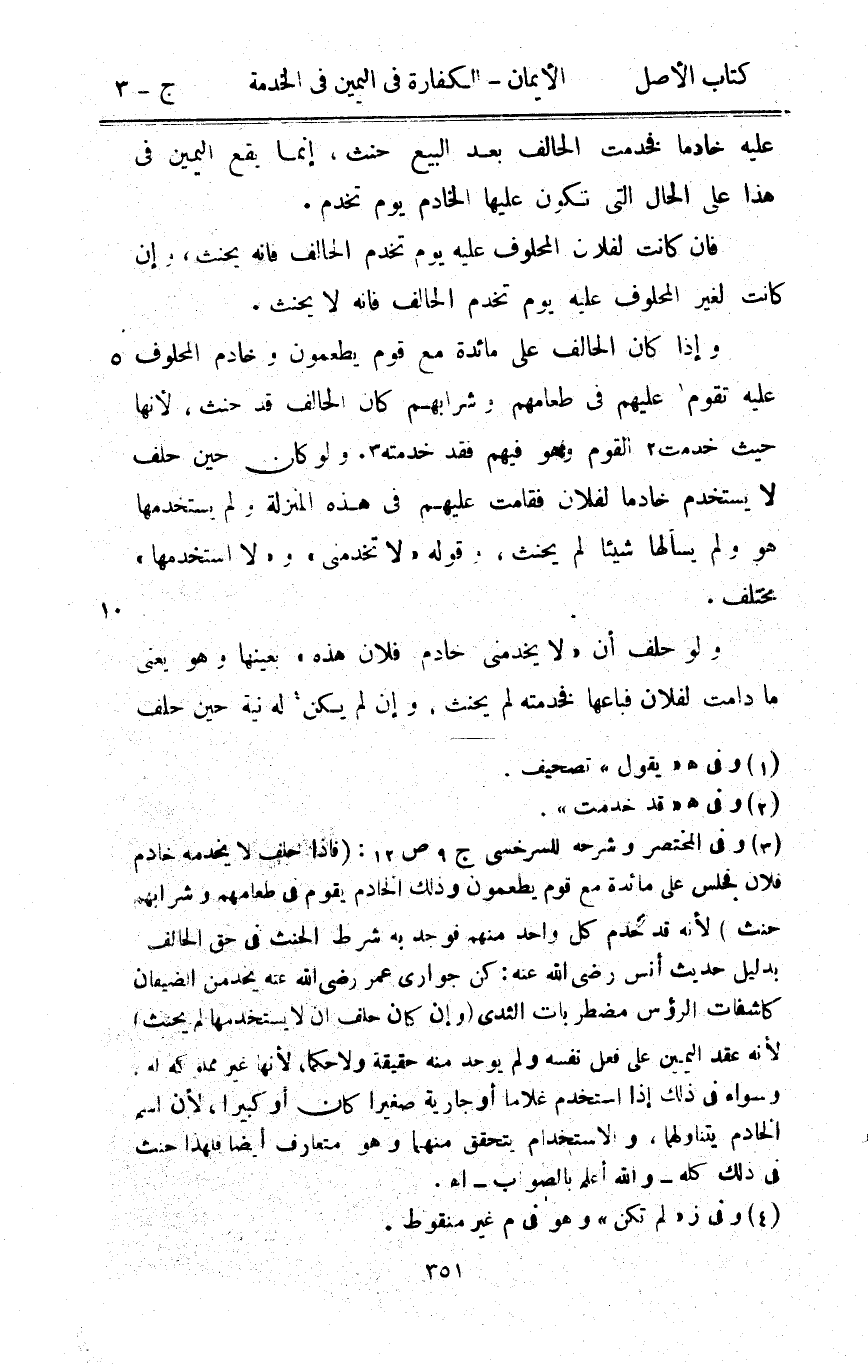 كتاب الأصل    الأيمان - الكفارة فى اليمين فى الخدمة    ج - ٣
عليه خادما فخدمت الحالف بعد البيع حنث ، إنما يقع اليمين فى
هذا على الحال التى تكون عليها الخادم يوم تخدم .
فان كانت لفلان المحلوف عليه يوم تخدم الحالف فانه يحنث ، و إن
كانت لغير المحلوف عليه يوم تخدم الحالف فانه لا يحنث .
و إذا كان الحالف على مائدة مع قوم يطعمون و خادم المحلوف ٥
عليه تقوم١ عليهم فى طعامهم و شرابهم كان الحالف قد حنث ، لأنها
حيث خدمت٢ القوم وهو فيهم فقد خدمته٣. و لو كان حين حلف
لا يستخدم خادما لفلان فقامت عليهم فى هذه المنزلة و لم يستخدمها
هو و لم يسألها شيئا لم يحنث ، و قوله « لا تخدمنى » و « لا استخدمها »
مختلف . ١٠
و لو حلف أن « لا يخدمنى خادم فلان هذه » بعينها و هو يعنى
ما دامت لفلان فباعها فخدمته لم يحنث ، و إن لم يكن٤ له نية حين حلف
(١) و فى ه « يقول » تصحيف .
(٢) و فى ه « قد خدمت » .
(٣) و فى المختصر و شرحه للسرخسى ج ٩ ص ١٢ : (فاذا حلف لا يخدمه خادم
فلان فجلس على مائدة مع قوم يطعمون وذلك الخادم يقوم فى طعامهم و شرابهم
حنث ) لأنه قد خدم كل واحد منهم فوجد به شرط الحنث فى حق الحالف
بدليل حديث أنس رضى الله عنه : كن جوارى عمر رضى الله عنه يخدمن الضيفان
كاشفات الرؤس مضطربات الثدى (و إن كان حلف ان لا يستخدمها لم يحنث)
لأنه عقد اليمين على فعل نفسه و لم يوجد منه حقيقة ولا حكما، لأنها غير مملوكه له ،
و سواء فى ذلك إذا استخدم غلاما أو جارية صغيرا كان أو كبيرا ، لأن اسم
الخادم يتناولهما ، و الاستخدام يتحقق منهما و هو متعارف أيضا فلهذا حنث
فى ذلك كله ــ و الله أعلم بالصواب ــ اه .
(٤) و فى ز « لم تكن » و هو فى م غير منقوط .
٣٥١